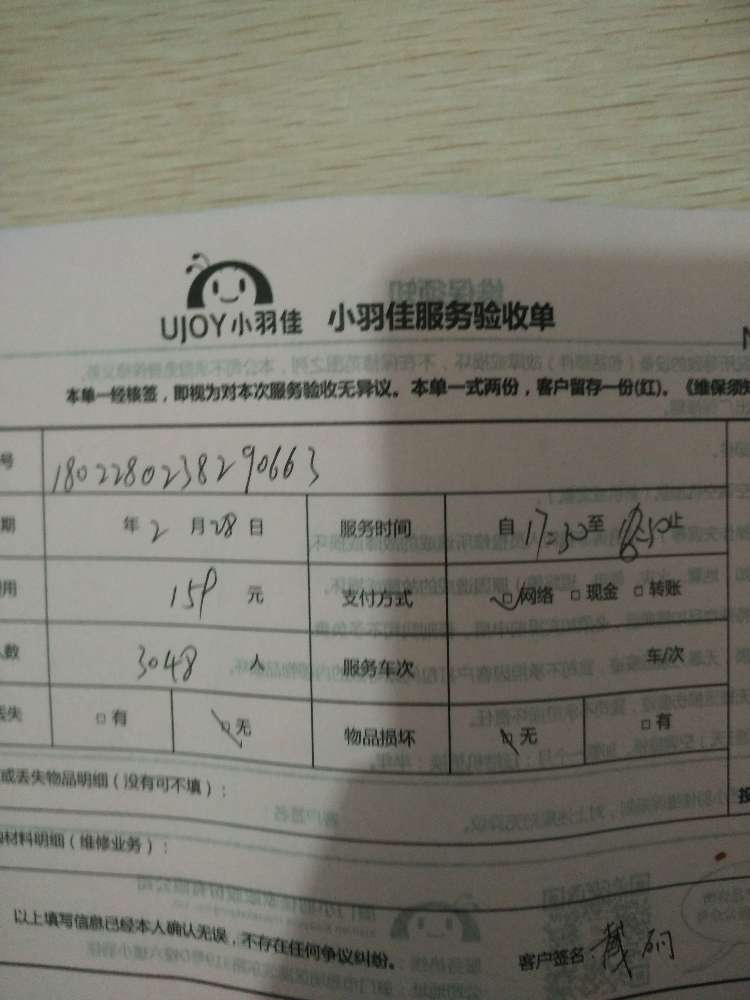 UJOY小羽佳 小羽佳服务验收单
本单一经核签，即视为对本次服务验收无异议。本单一式两份，客户留存一份(红)。《维保须知
号 1802280238290663
期 年 2 月 28 日 服务时间 自 17:30 至 18:50 止
用 159 元 支付方式 网络 现金 转账
人数 3048 人 服务车次 车/次
丢失 有 无 物品损坏 无 有
或丢失物品明细（没有可不填）：
材料明细（维修业务）：
以上填写信息已经本人确认无误，不存在任何争议纠纷。 客户签名：